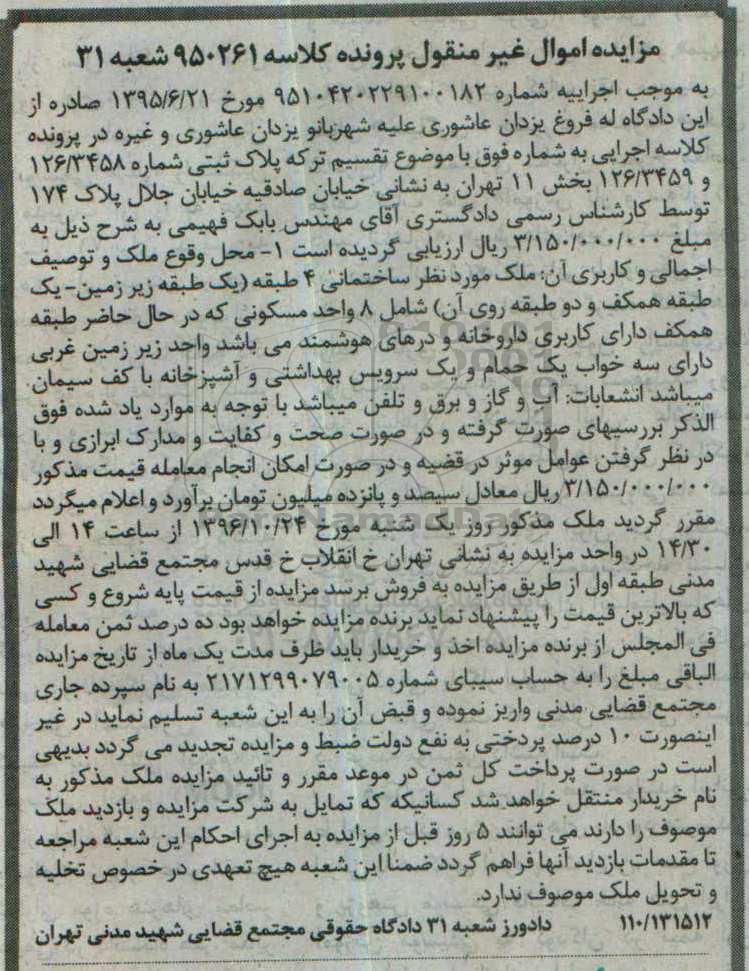 مزایده اموال غیر منقول پرونده کلاسه ۹۵۰۲۶۱ شعبه ۳۱
به موجب اجراییه شماره ۹۵۱۰۴۲۰۲۲۹۱۰۰۱۸۲ مورخ ۱۳۹۵/۶/۲۱ صادره از
این دادگاه له فروغ یزدان عاشوری علیه شهربانو یزدان عاشوری و غیره در پرونده
کلاسه اجرایی به شماره فوق با موضوع تقسیم ترکه پلاک ثبتی شماره ۱۲۶/۳۴۵۸
و ۱۲۶/۳۴۵۹ بخش ۱۱ تهران به نشانی خیابان صادقیه خیابان جلال پلاک ۱۷۴
توسط کارشناس رسمی دادگستری آقای مهندس بابک فهیمی به شرح ذیل به
مبلغ ۳/۱۵۰/۰۰۰/۰۰۰ ریال ارزیابی گردیده است ۱- محل وقوع ملک و توصیف
اجمالی و کاربری آن: ملک مورد نظر ساختمانی ۴ طبقه (یک طبقه زیر زمین- یک
طبقه همکف و دو طبقه روی آن) شامل ۸ واحد مسکونی که در حال حاضر طبقه
همکف دارای کاربری داروخانه و درهای هوشمند می باشد واحد زیر زمین غربی
دارای سه خواب یک حمام و یک سرویس بهداشتی و آشپزخانه با کف سیمان
میباشد انشعابات: آب و گاز و برق و تلفن میباشد با توجه به موارد یاد شده فوق
الذکر بررسیهای صورت گرفته و در صورت صحت و کفایت و مدارک ابرازی و با
در نظر گرفتن عوامل موثر در قضیه و در صورت امکان انجام معامله قیمت مذکور
۳/۱۵۰/۰۰۰/۰۰۰ ریال معادل سیصد و پانزده میلیون تومان برآورد و اعلام میگردد
مقرر گردید ملک مذکور روز یک شنبه مورخ ۱۳۹۶/۱۰/۲۴ از ساعت ۱۴ الی
۱۴/۳۰ در واحد مزایده به نشانی تهران خ انقلاب خ قدس مجتمع قضایی شهید
مدنی طبقه اول از طریق مزایده به فروش برسد مزایده از قیمت پایه شروع و کسی
که بالاترین قیمت را پیشنهاد نماید برنده مزایده خواهد بود ده درصد ثمن معامله
فی المجلس از برنده مزایده اخذ و خریدار باید ظرف مدت یک ماه از تاریخ مزایده
الباقی مبلغ را به حساب سیبای شماره ۲۱۷۱۲۹۹۰۷۹۰۰۵ به نام سپرده جاری
مجتمع قضایی مدنی واریز نموده و قبض آن را به این شعبه تسلیم نماید در غیر
اینصورت ۱۰ درصد پرداختی به نفع دولت ضبط و مزایده تجدید می گردد بدیهی
است در صورت پرداخت کل ثمن در موعد مقرر و تائید مزایده ملک مذکور به
نام خریدار منتقل خواهد شد کسانیکه که تمایل به شرکت مزایده و بازدید ملک
موصوف را دارند می توانند ۵ روز قبل از مزایده به اجرای احکام این شعبه مراجعه
تا مقدمات بازدید آنها فراهم گردد ضمنا این شعبه هیچ تعهدی در خصوص تخلیه
و تحویل ملک موصوف ندارد.
۱۱۰/۱۳۱۵۱۲ دادورز شعبه ۳۱ دادگاه حقوقی مجتمع قضایی شهید مدنی تهران